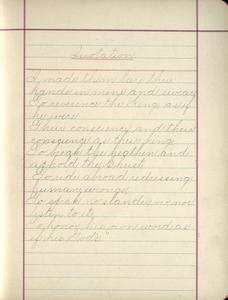 Quotation
I made them lay their
hands in mine and swear
To reverence the King as if
he were
Their conscience and their
conscience as their King
To break the heathen and
uphold the Christ
To ride abroad redressing
human wrongs
To speak no slander no nor
listen to it
To honor his own word as
if his God's"